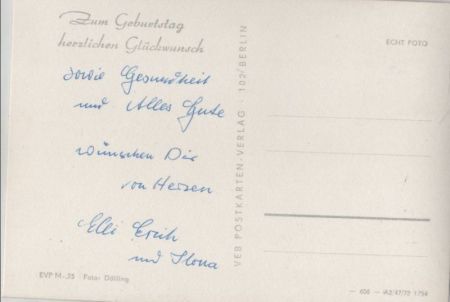 Zum Geburtstag
herzlichen Glückwunsch
sowie Gesundheit
und Alles Gute
wünschen Dir
von Herzen
Elli Erich
und Ilona
EVP M -,25 Foto: Dölling
VEB POSTKARTEN-VERLAG · 102 BERLIN
ECHT FOTO
— 606 — A2/47/72 1794